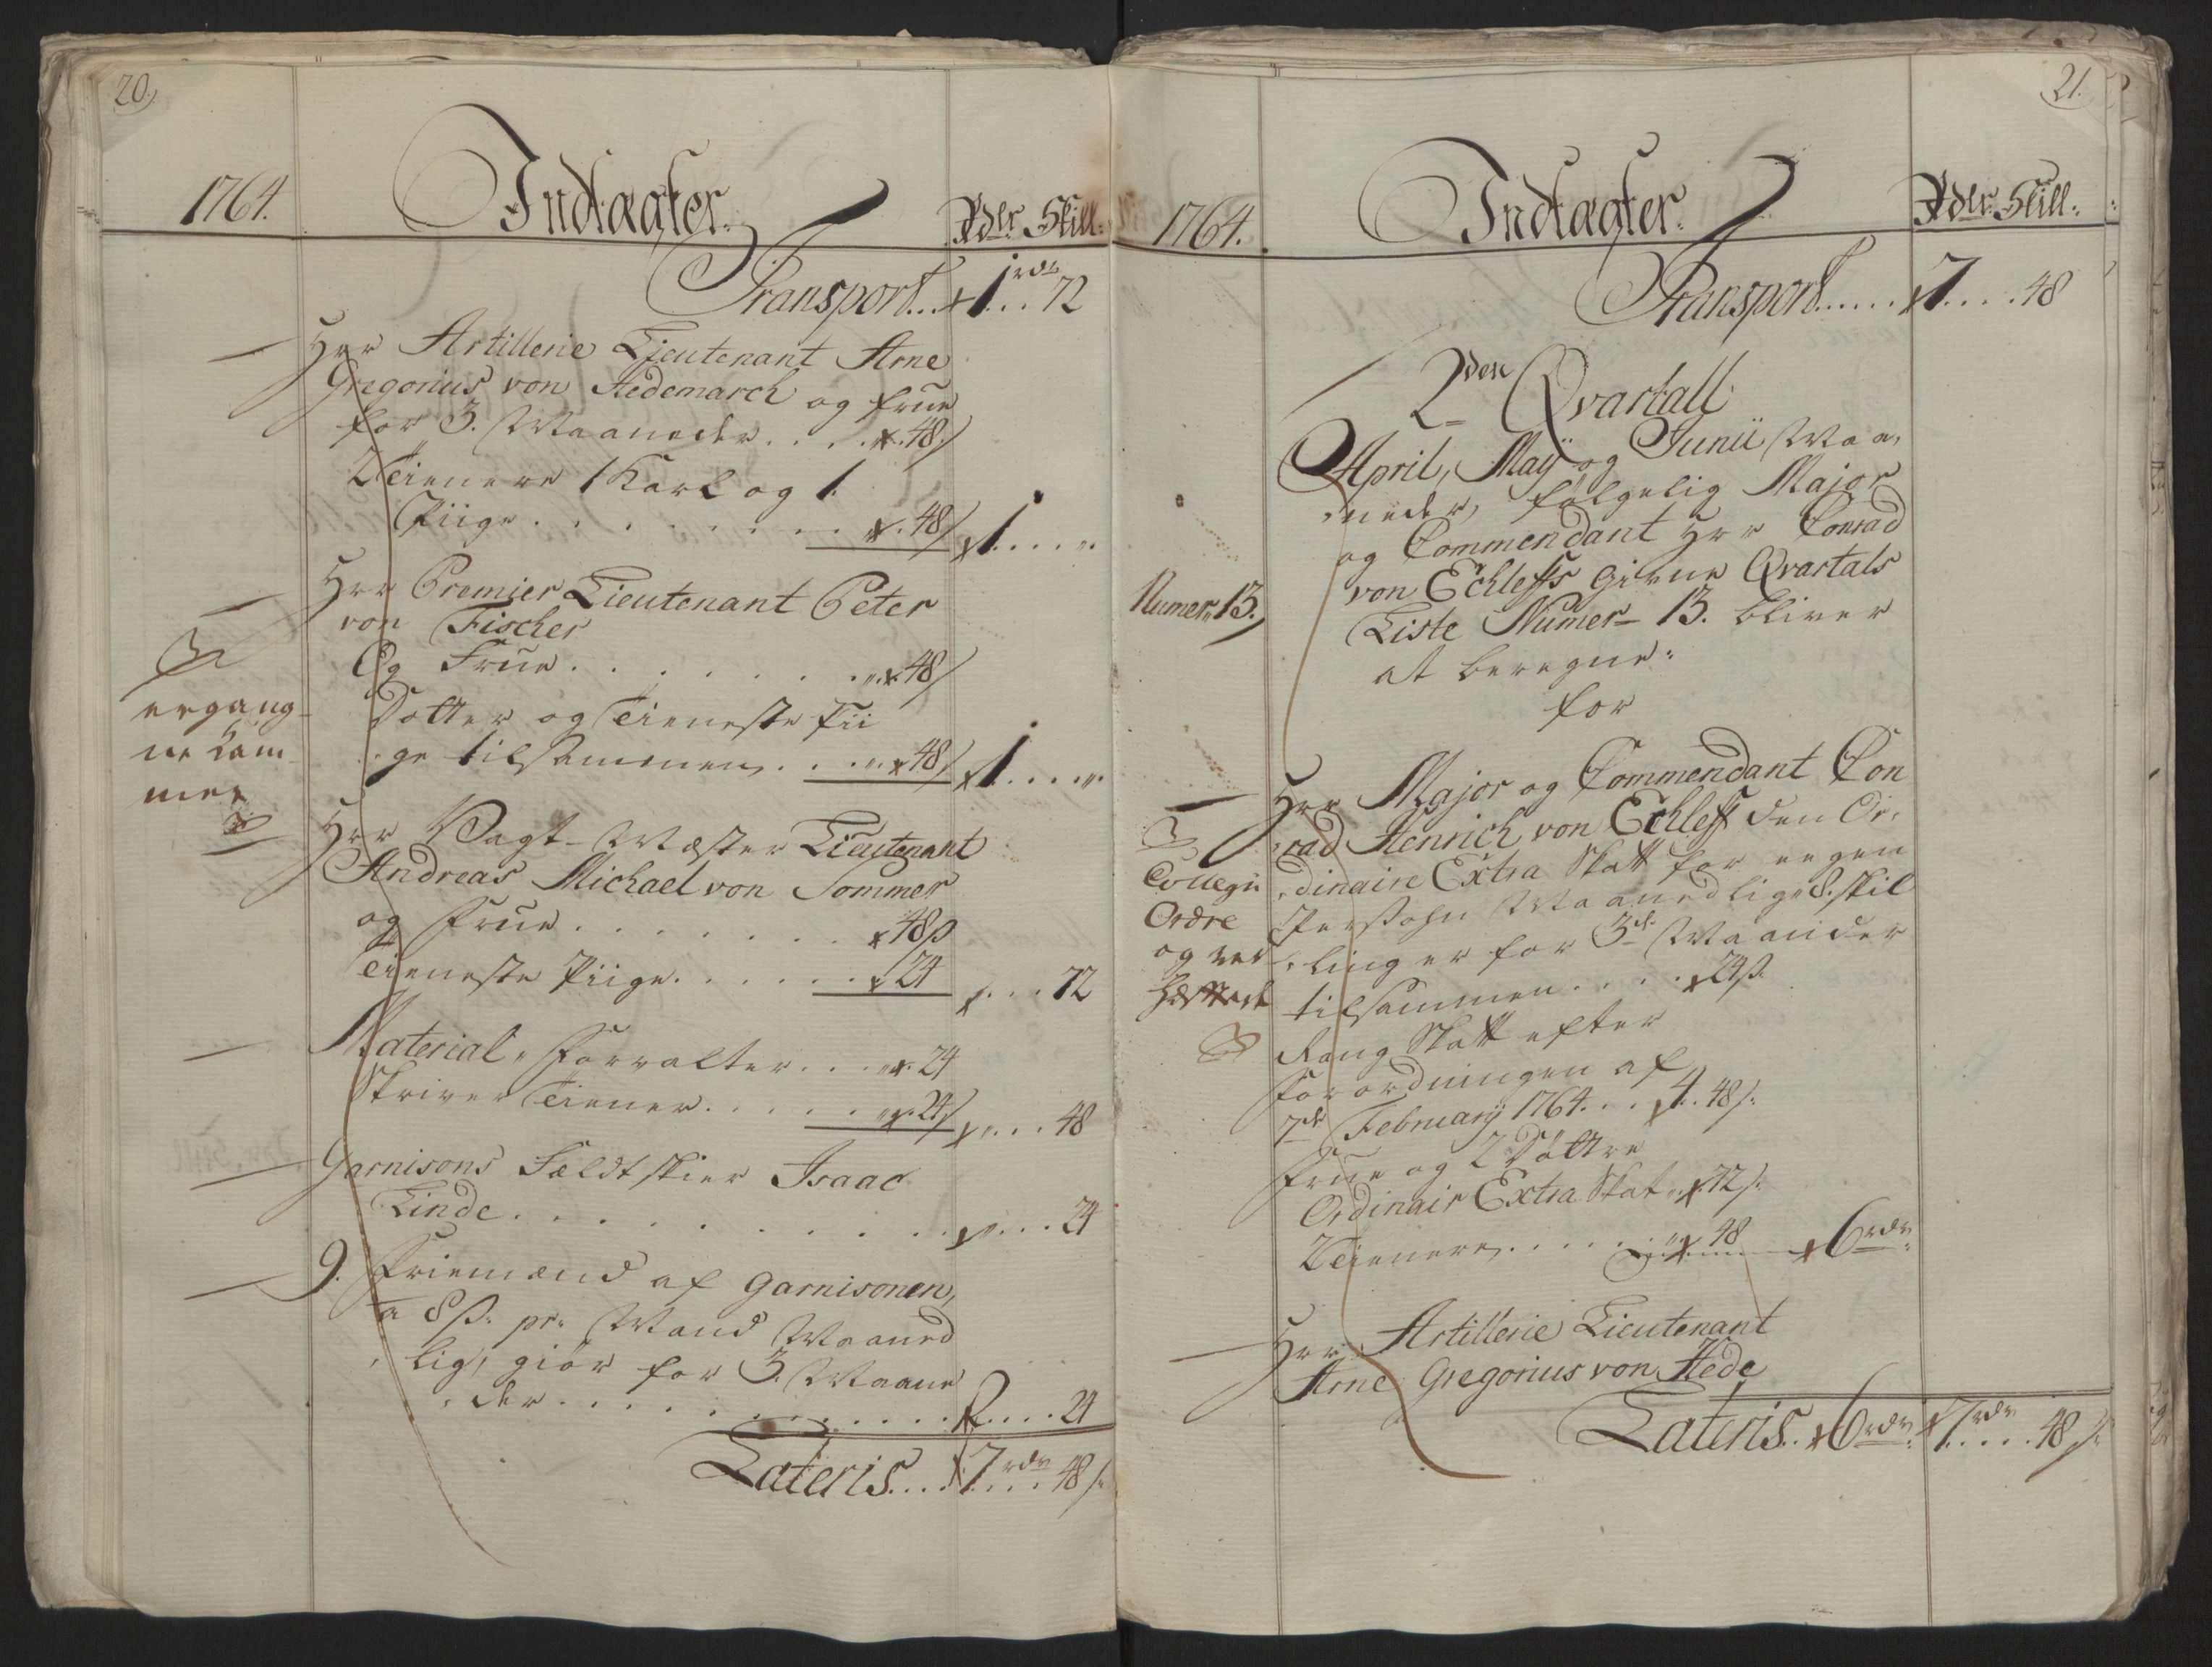 20.
1764. Indtægter. Rdlr Skill:
Transport... 1 rdr. 72
Herr Artillerie Lieutenant Arne
Gregorius von Hedemarch og frue
for 3. Maaneder.... 48/
2 Tienere 1 Karl og 1.
Piige........ 48/ 1....
Herr Premier Lieutenant Peter
von Fischer
Og Frue........ 48/
Dotter og Tieneste Pii
ge tilsammen.... 48/ 1....
ergang-
ne
mer
Herr Vagt-Mæster Lieutenant
Andreas Michael von Sommer
og Frue........ 48 ß
Tieneste Piige...... 24 ... 72
Material-Forvalter.... 24
Skriver Tiener..... 24/ .... 48
Garnisons Feldtskier Isaac
Linde.......... .... 24
9. Friemænd af Garnisonen,
a 8 ß. pr. Mand Maaned
lig, giör for 3. Maane
der.............. 2.... 24
Lateris.... 7 rdr 48 ß
21.
1764. Indtægter. Rdlr Skill:
Transport..... 7.... 48
2den Qvartall
April, Maÿ og Junii Maa,
neder, følgelig Major
og Commendant Herr Conrad
von Echleff's givne Qvartals
Numer 13. Liste Numer 13. bliver
at beregne:
for
Herr Major og Commendant Con
rad Henrich von Echleff den Or,
Collegii dinaire Extra Skatt for eegen
Ordre Persohn Maanedlig 8. skil
og ved linger for 3de Maaneder
hæftede tilsammen.... 24 ß.
Rang Skatt efter
Forordningen af
7de Februarij 1764... 4. 48 ß.
Frue og 2 Döttre
Ordinair Extra Skat.. 72 ß.
2 Tienere..... 48 6 rdr
Herr Artillerie Lieutenant
Arne Gregorius von Hede
Lateris.. 6 rdr 7 rdr.... 48 ß